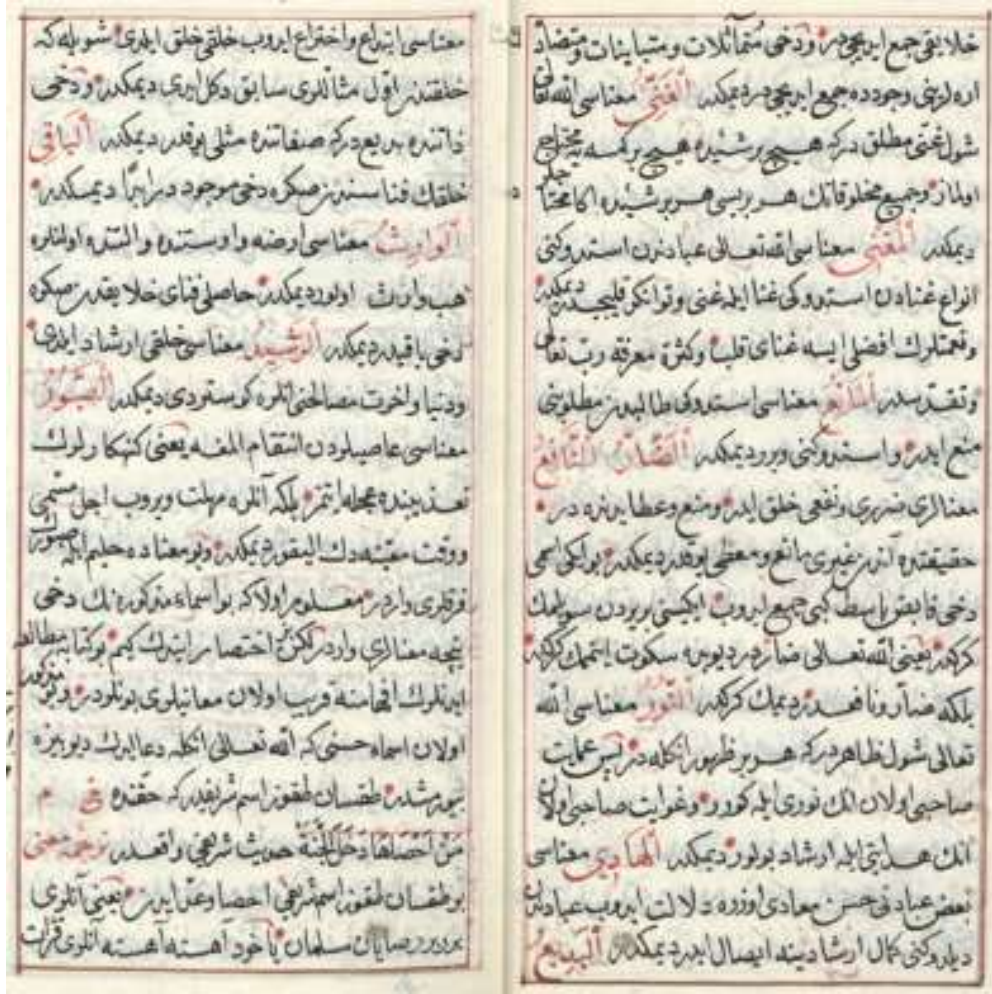 خلايقى جمع ايديجيدر ودخى متماثلات ومتباينات ومتضاد
اره لرينى وجودده جمع ايديجيدر ديمكدر اَلْغَنِىُّ معناسى الله تعالى
شول غنى مطلق دركه هيچ بر شيئده هيچ بر كمسه يه محتاج
اولماز وجميع مخلوقاتك هر بريسى هر بر شيئده اكا محتاج
ديمكدر اَلْمُغْنِى معناسى الله تعالى عبادندن استدوكنى
انواع غنادن استدوكى غنا ايله غنى وتوانكر قليجيدر ديمكدر
ونعمتلرك افضلى ايسه غناى قلب وكثرة معرفة رب تعالى
وتقدسدر اَلْمَانِعُ معناسى استدوكى طالبدن مطلوبنى
منع ايدر واستدوكنى ويرر ديمكدر اَلضَّارُّ اَلنَّافِعُ
معنالرى ضررى ونفعى خلق ايدر ومنع وعطا يرنده در
حقيقتده آندن غيرى مانع ومعطى يوقدر ديمكدر بو ايكى اسمى
دخى قابض باسط كبى جمع ايدوب ايكيسنى بردن سويلمك
كركدر يعنى الله تعالى ضاردر ديوبده سكوت ايتممك كركدر
بلكه ضار ونافعدر ديمك كركدر اَلنُّورُ معناسى الله
تعالى شول ظاهر دركه هر بر ظهور انكله در پس عمايت
صاحبى اولان انك نورى ايله كورر وغوايت صاحبى اولان
انك هدايتى ايله ارشاد بولور ديمكدر اَلْهَادِى معناسى
بعض عبادنى حسن معادى اوزره دلالت ايدوب عبادندن
ديلدوكنى كمال ارشادينه ايصال ايدر ديمكدر اَلْبَدِيعُ
معناسى ابداع واختراع ايدوب خلقى خلق ايلدى شويله كه
خلقتدن اول مثاللرى سابق دكل ايدى ديمكدر ودخى
ذاتنده بديع دركه صفاتنده مثلى يوقدر ديمكدر اَلْبَاقِى
خلقك فناسندن صكره دخى موجود در ابدًا ديمكدر
اَلْوَارِثُ معناسى ارضه واوستنده والتنده اولنلره
هب وارث اولور ديمكدر حاصلى فناى خلايقدن صكره
دخى باقيدر ديمكدر اَلرَّشِيدُ معناسى خلقى ارشاد ايلدى
ودنيا واخرت مصالحنى انلره كوستردى ديمكدر اَلصَّبُورُ
معناسى عاصيلردن انتقام المغه يعنى كنهكارلرك
تعذيبنده عجله ايتمز بلكه آنلره مهلت ويروب اجل مسمى
ووقت معيّنه دك اليقور ديمكدر وبو معناده حليم ايله صبورك
فرقلرى واردر معلوم اولا كه بو اسماء مذكوره نك دخى
نيچه معنالرى واردر لكن اختصار ايتدك كيم بو كتابه مطالعه
ايدنلرك افهامنه قريب اولان معانيلرى بونلردر وبو مذكور
اولان اسماء حسنى كه الله تعالى انكله دعا ايدك ديو بزه
بيورمشدر طقسان طقوز اسم شريفدر كه حقنده
مَنْ اَحْصَاهَا دَخَلَ الْجَنَّةَ حديث شريفى واقعدر
بو طقسان طقوز اسم شريفى احصا وعدّ ايدن يعنى آنلرى
برر برر صايان مسلمان ياخود آهسته آهسته انلرى قرائت